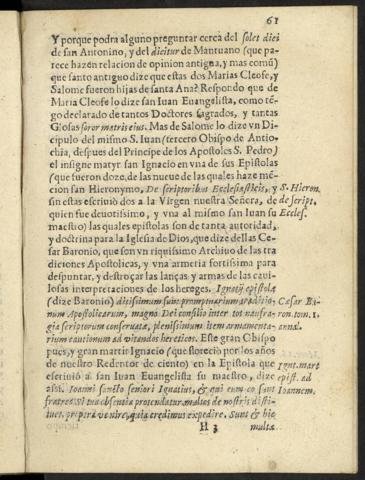 61
Y porque podra alguno preguntar cerca del solet dici
de san Antonino, y del dicitur de Mantuano (que pa-
rece hazen relacion de opinion antigua, y mas comũ)
que santo antiguo dize que estas dos Marias Cleofe, y
Salome fueron hijas de santa Ana? Respondo que de
Maria Cleofe lo dize san Iuan Euangelista, como tẽ-
go declarado de tantos Doctores sagrados, y tantas
Glosas soror matris eius. Mas de Salome lo dize vn Di-
cipulo del mismo S. Iuan (tercero Obispo de Antio-
chia, despues del Principe de los Apostoles S. Pedro)
el insigne martyr san Ignacio en vna de sus Epistolas
(que fueron doze, de las nueue de las quales haze mẽ-
cion san Hieronymo, De scriptoribus Ecclesiasticis, y
S. Hieron.
sin estas escriuiò dos a la Virgen nuestra Señora, de
de Script.
quien fue deuotissimo, y vna al mismo san Iuan su
Eccles.
maestro) las quales epistolas son de tanta autoridad,
y doctrina para la Iglesia de Dios, que dize dellas Ce-
sar Baronio, que son vn riquissimo Archiuo de las tra
diciones Apostolicas, y vna armeria fortissima para
despuntar, y destroçar las lanças y armas de las caui-
losas interpretaciones de los hereges. Ignatij epistolæ
(dize Baronio) ditissimum sunt promptuarium traditio-
Cæsar Ba-
num Apostolicarum, magno Dei consilio inter tot naufra-
ron. tom. 1.
gia scriptorum conseruatæ, plenissimum item armamenta-
annal.
rium cautionum ad vitandos hereticos. Este gran Obispo
pues, y gran martir Ignacio (que florecio por los años
de nuestro Redentor de ciento) en la Epistola que
Ignt. mart
escriuiò a san Iuan Euangelista su maestro, dize
epist. ad
assi. Ioanni sancto seniori Ignatius, & qui cum eo sunt
Ioannem.
fratres. Si tua absentia protendatur, multas de nostris desti-
tues, propera venire, quia credimus expedire. Sunt & hic
H 3
multæ